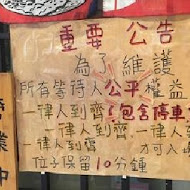 重要公告
為了維護
所有等待人公平權益
一律人到齊(包含停車)
一律人到齊 一律人
一律人到齊 才可入
位子保留10分鐘
營業中